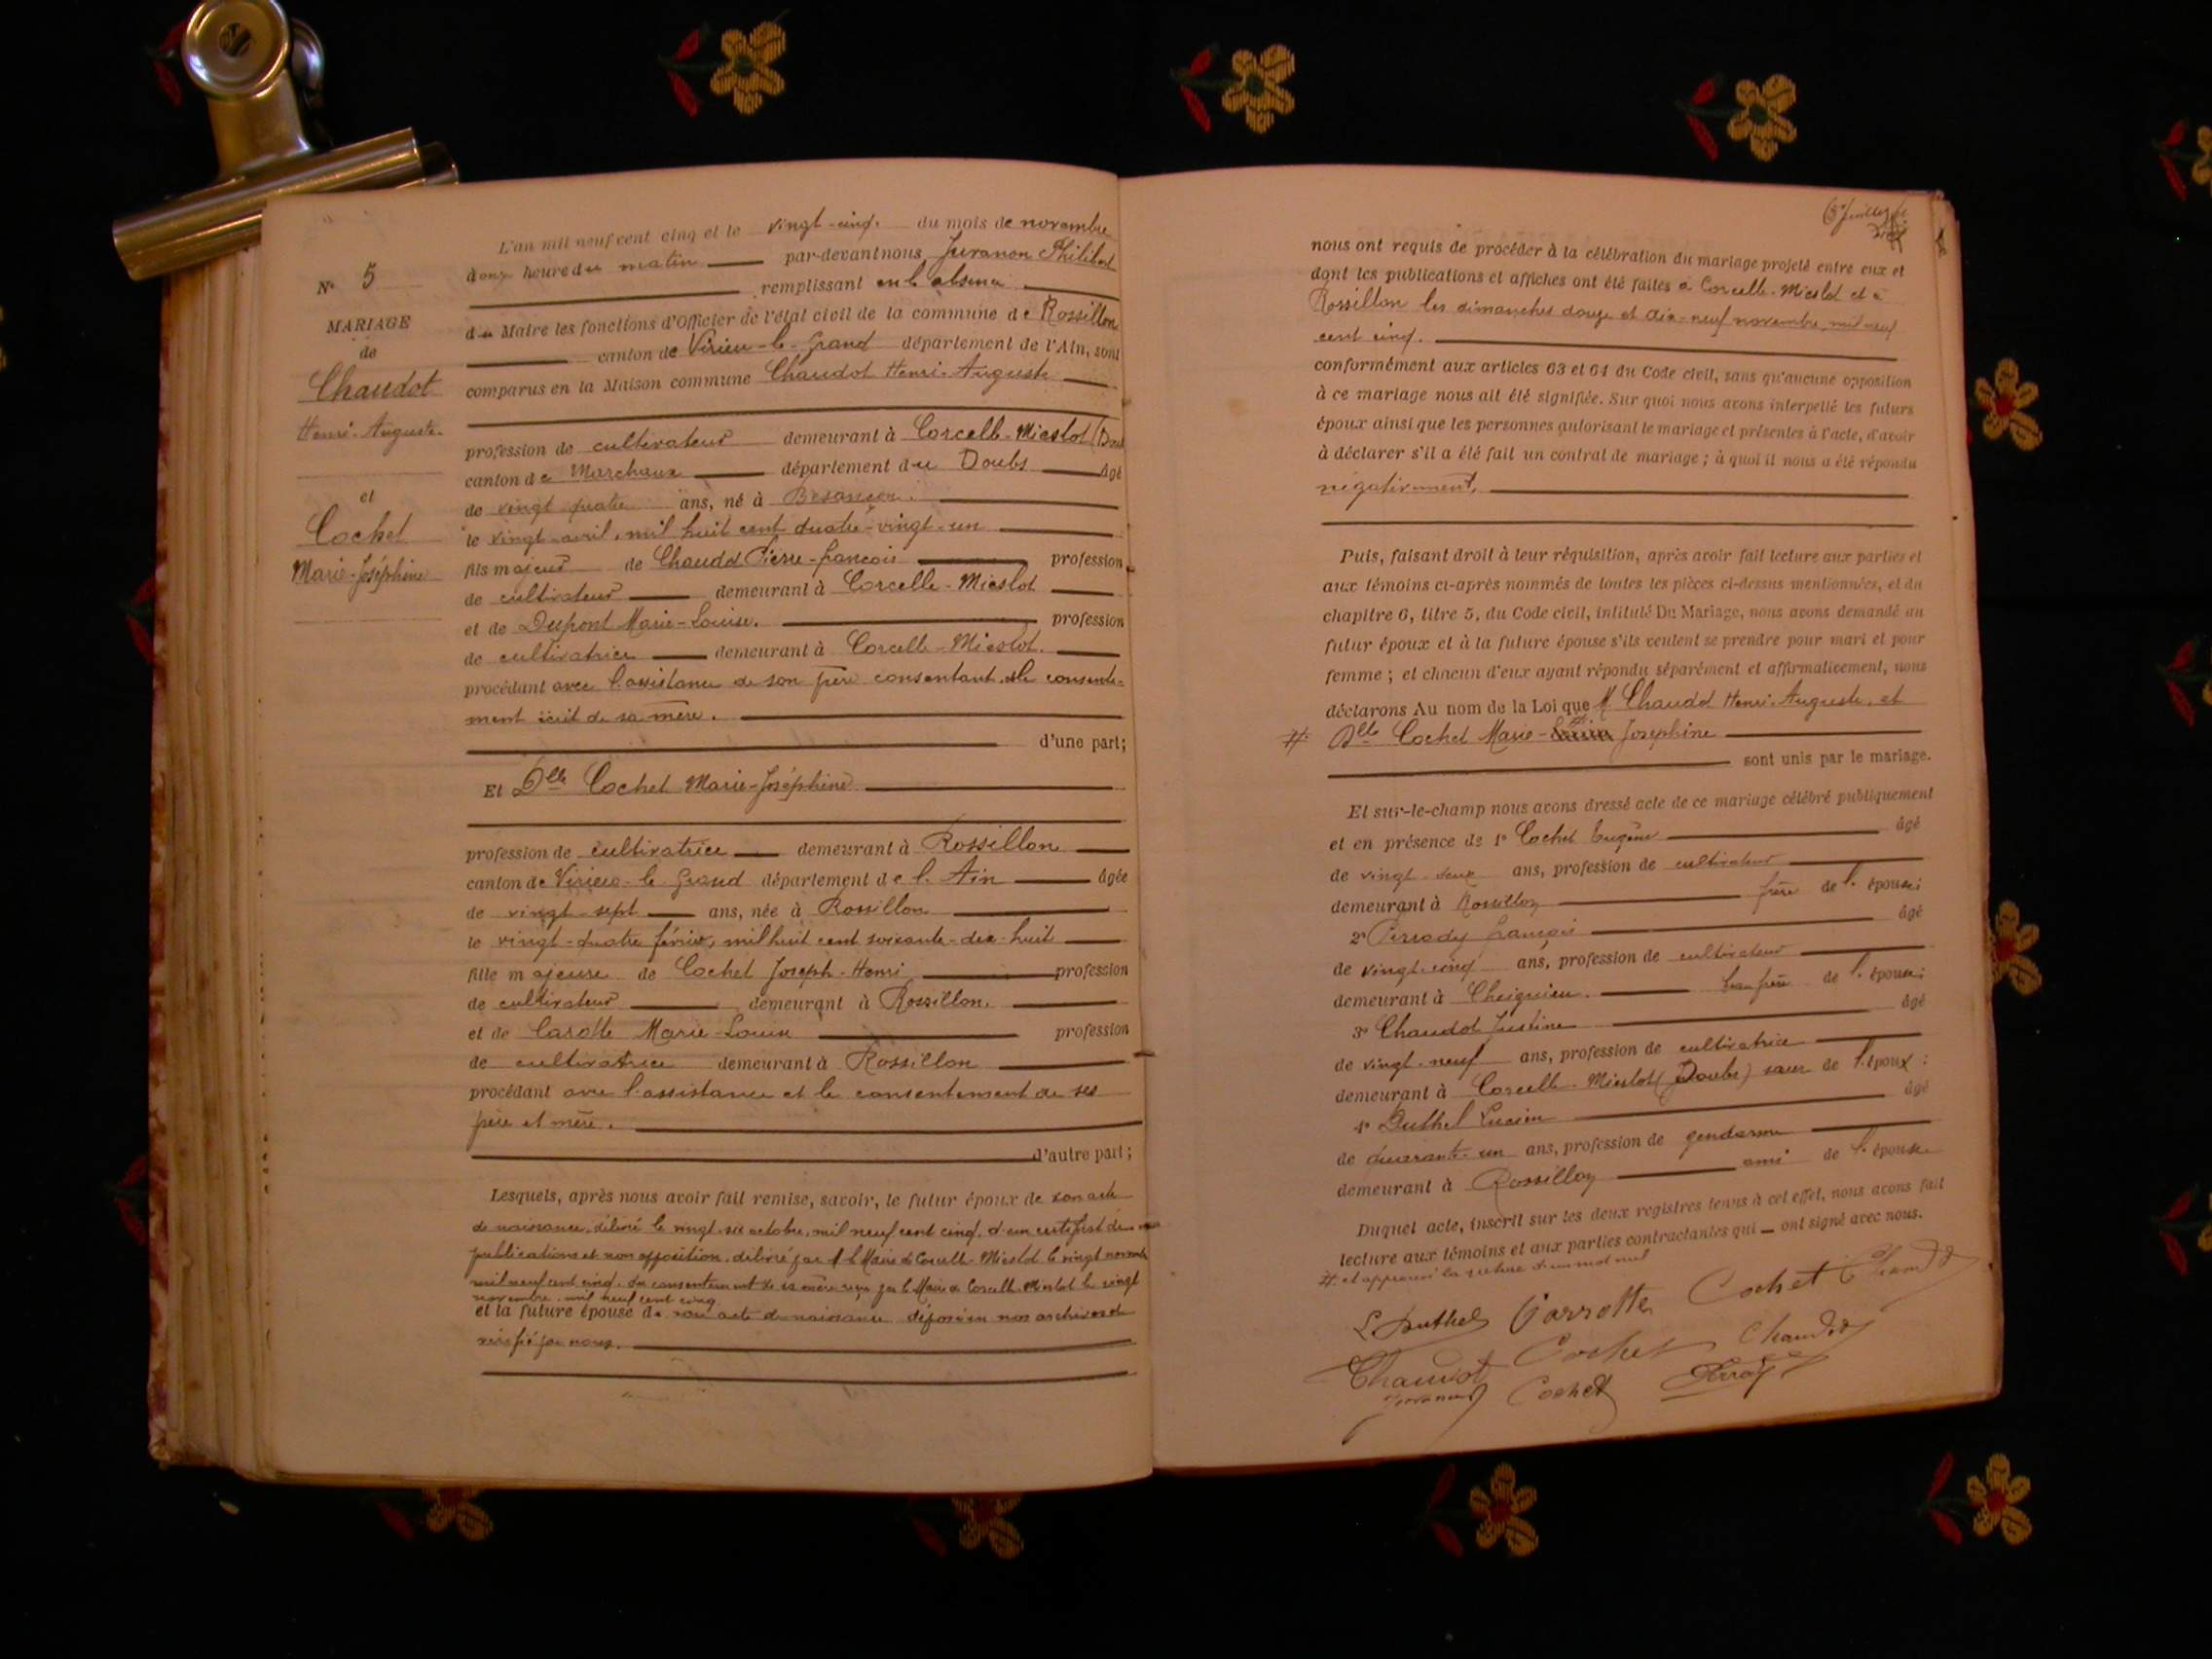 N° 5
MARIAGE
de
Chaudot
Henri-Auguste
et
Cochet
Marie-Joséphine
L'an mil neuf cent cinq et le vingt-cinq du mois de novembre
heure du matin par-devant nous Juvanon Philibert
remplissant en l'absence
du Maire les fonctions d'Officier de l'état civil de la commune de Rossillon
canton de Virieu-le-Grand département de l'Ain, sont
comparus en la Maison commune Chaudot Henri-Auguste
profession de cultivateur demeurant à Corcelle-Mieslot (Doubs
canton de Marchaux département du Doubs âgé
de vingt quatre ans, né à Besançon.
le vingt avril, mil huit cent quatre-vingt-un
fils majeur de Chaudot Pierre-françois profession
de cultivateur demeurant à Corcelle-Mieslot
et de Dupont Marie-Louise. profession
de cultivatrice demeurant à Corcelle-Mieslot.
procédant avec l'assistance de son père consentant, et le consente-
ment écrit de sa mère.
d'une part;
Et Dlle Cochet Marie-Joséphine
profession de cultivatrice demeurant à Rossillon
canton de Virieu-le-Grand département de l'Ain âgée
de vingt-sept ans, née à Rossillon
le vingt-quatre février, mil huit cent soixante-dix-huit
fille majeure de Cochet Joseph-Henri profession
de cultivateur demeurant à Rossillon.
et de Carotte Marie-Louise profession
de cultivatrice demeurant à Rossillon
procédant avec l'assistance et le consentement de ses
père et mère.
d'autre part;
Lesquels, après nous avoir fait remise, savoir, le futur époux de son acte
de naissance, délivré le vingt-six octobre, mil neuf cent cinq, d'un certificat de
publications et non opposition, délivré par M. le Maire de Corcelle-Mieslot le vingt novembre
mil neuf cent cinq. du consentement de sa mère reçu par le Maire de Corcelle-Mieslot le vingt
novembre mil neuf cent cinq
et la future épouse de son acte de naissance déposé en nos archives et
vérifié par nous.
nous ont requis de procéder à la célébration du mariage projeté entre eux et
dont les publications et affiches ont été faites à Corcelle-Mieslot et à
Rossillon les dimanches douze et dix-neuf novembre, mil neuf
cent cinq.
conformément aux articles 63 et 64 du Code civil, sans qu'aucune opposition
à ce mariage nous ait été signifiée. Sur quoi nous avons interpellé les futurs
époux ainsi que les personnes autorisant le mariage et présentes à l'acte, d'avoir
à déclarer s'il a été fait un contrat de mariage; à quoi il nous a été répondu
négativement.
Puis, faisant droit à leur réquisition, après avoir fait lecture aux parties et
aux témoins ci-après nommés de toutes les pièces ci-dessus mentionnées, et du
chapitre 6, titre 5, du Code civil, intitulé Du Mariage, nous avons demandé au
futur époux et à la future épouse s'ils veulent se prendre pour mari et pour
femme; et chacun d'eux ayant répondu séparément et affirmativement, nous
déclarons Au nom de la Loi que M. Chaudot Henri-Auguste, et
# Dlle Cochet Marie- Joséphine
sont unis par le mariage.
Et sur-le-champ nous avons dressé acte de ce mariage célébré publiquement
et en présence de 1° Cochet Eugène âgé
de vingt-deux ans, profession de cultivateur
demeurant à Rossillon frère de l'épouse;
2° Perrody françois âgé
de vingt-cinq ans, profession de cultivateur
demeurant à Cheignieu. beau-frère de l'épouse;
3° Chaudot Justine âgé
de vingt-neuf ans, profession de cultivatrice
demeurant à Corcelle-Mieslot (Doubs) sœur de l'époux;
4° Duthel Lucien âgé
de quarante-un ans, profession de gendarme
demeurant à Rossillon ami de l'épouse
Duquel acte, inscrit sur les deux registres tenus à cet effet, nous avons fait
lecture aux témoins et aux parties contractantes qui ont signé avec nous.
# et approuvé la rature d'un mot nul
L Duthel Carrotte Cochet Chaudot
Chaudot Cochet Chaudot
Juvanon Cochet